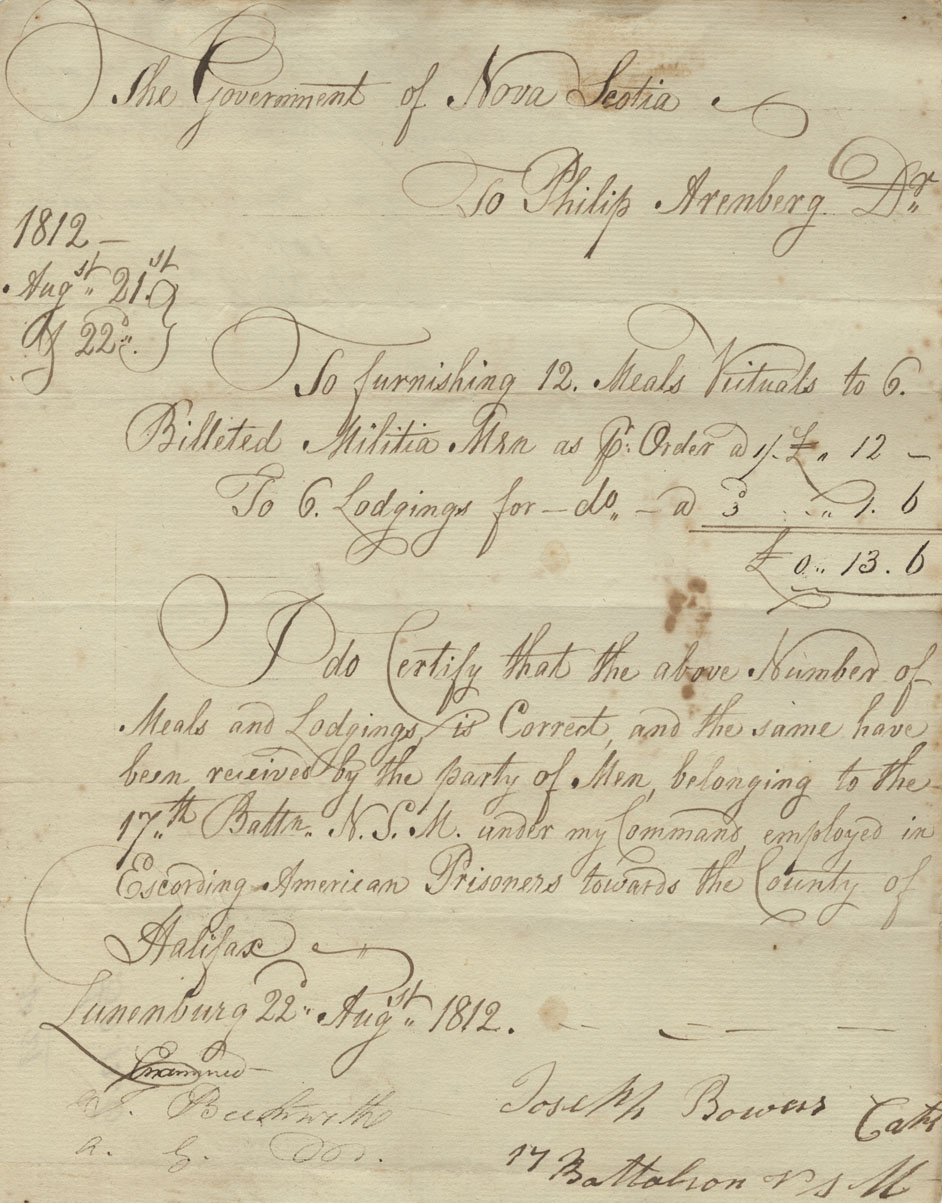 The Government of Nova Scotia
To Philip Arenberg Dr
1812 –
Augst 21st
& 22d.
To furnishing 12. Meals Vituals to 6.
Billeted Militia Men as pr. Order a 1/- £ " 12 –
To 6. Lodgings for – do " – a 3d " 1. 6
£ 0 " 13. 6
I do Certify that the above Number of
Meals and Lodgings, is Correct, and the same have
been received by the party of Men, belonging to the
17th Battn. N. S. M. under my Command, employed in
Escording American Prisoners towards the County of
Halifax
Lunenburg 22d. Augst 1812.
Examined –
T. Beckwith
a. G.
Joseph Bowers Catn
17 Battalson N S M